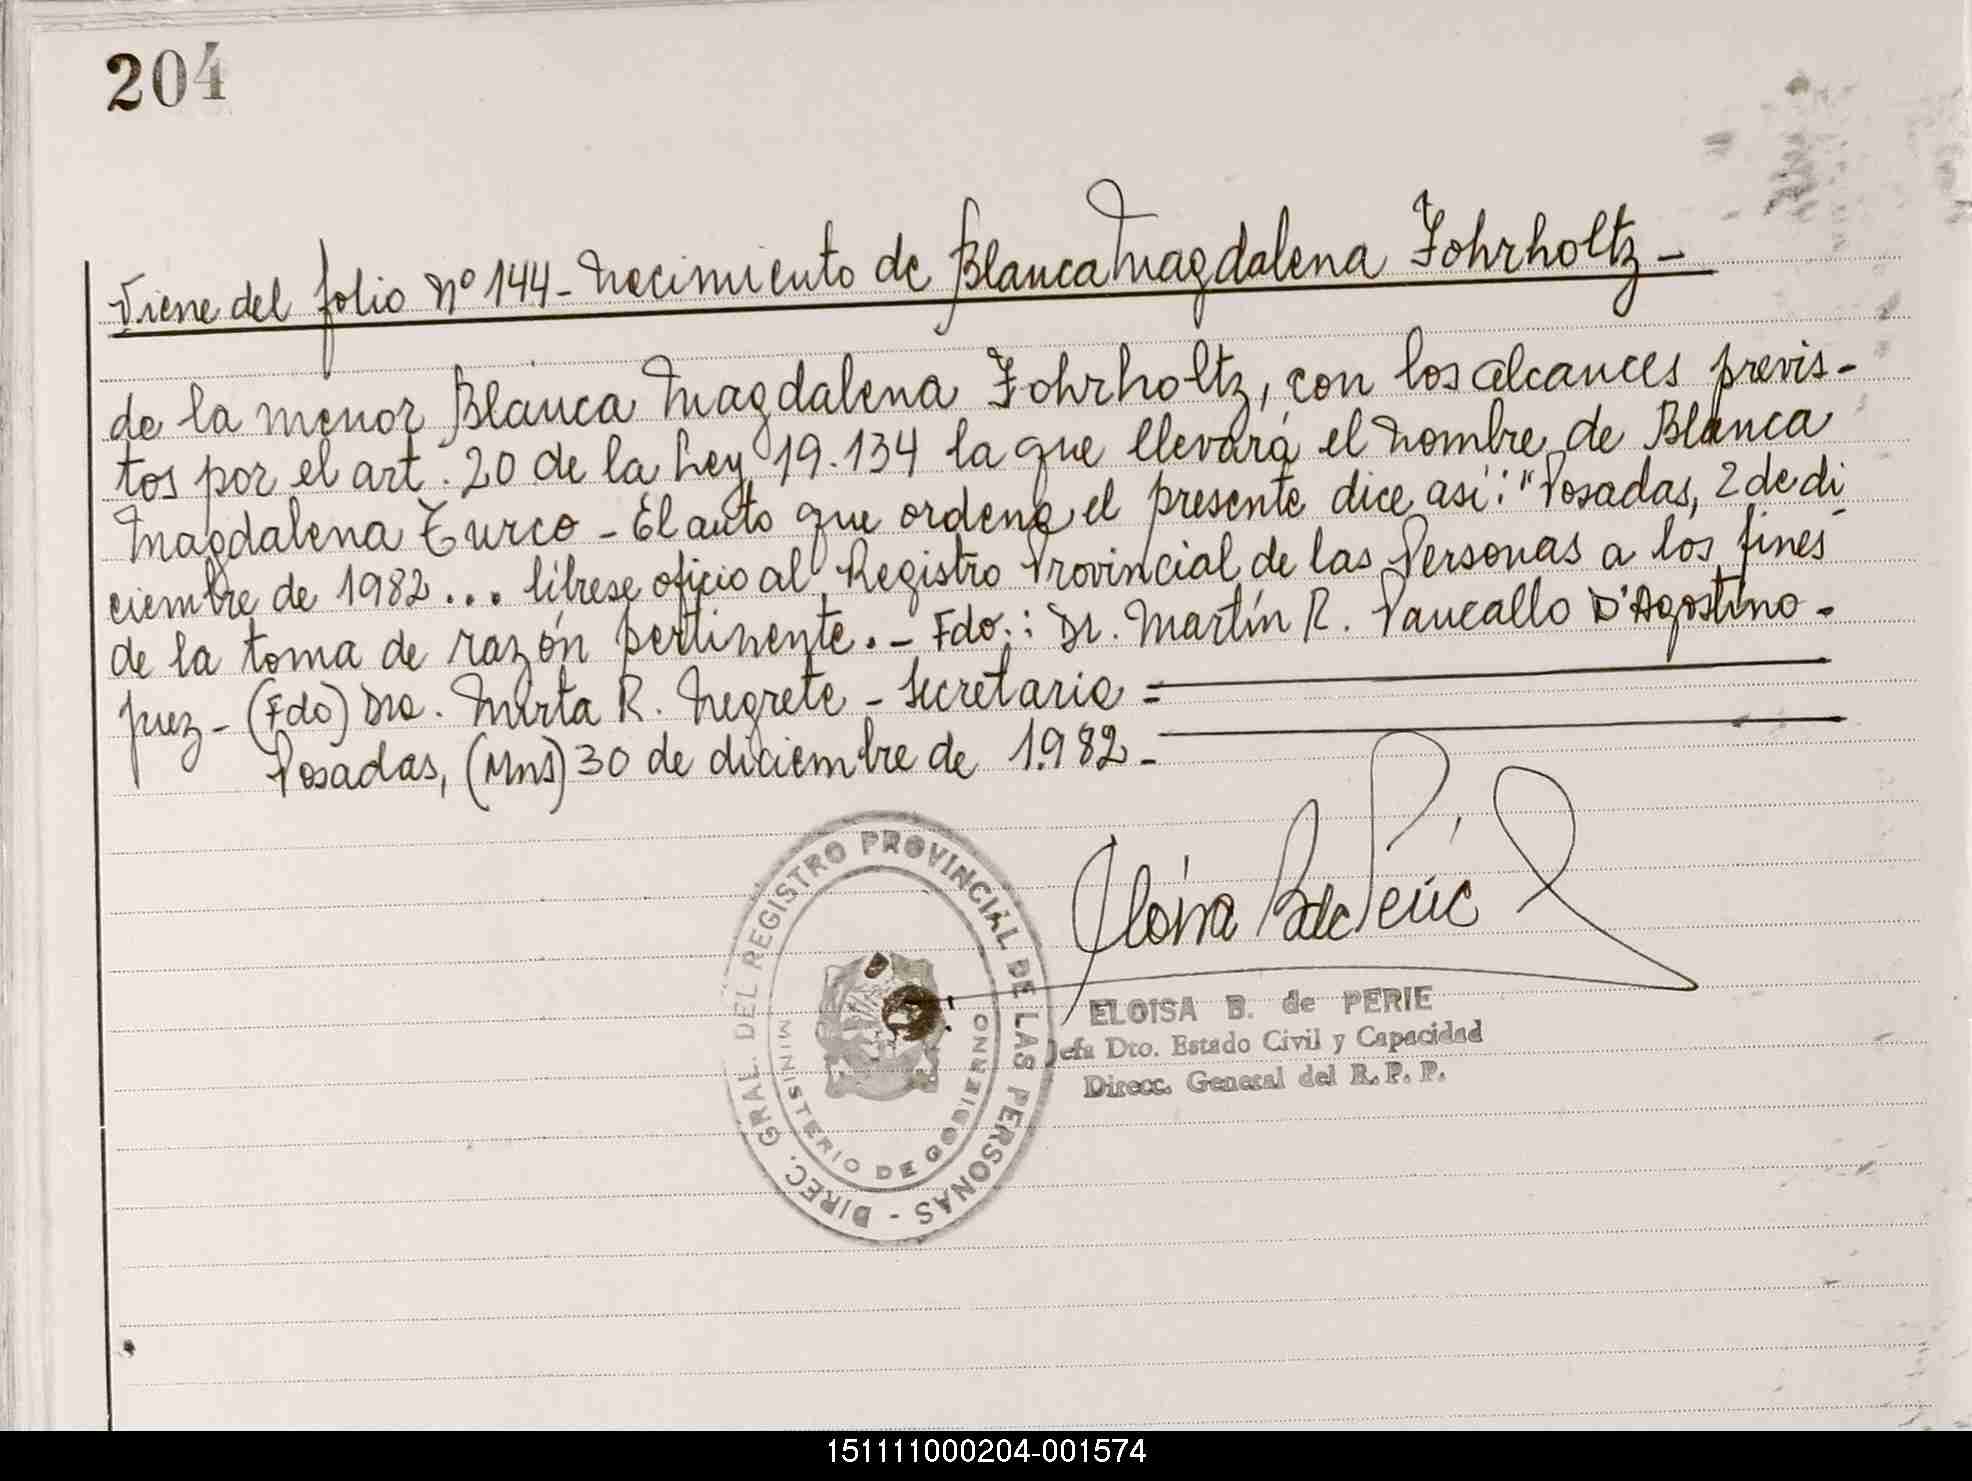 204
Viene del folio Nº 144 - Nacimiento de Blanca Magdalena Fohrholtz -
de la menor Blanca Magdalena Fohrholtz, con los alcances previs-
tos por el art. 20 de la Ley 19.134 la que llevará el nombre de Blanca
Magdalena Turco - El auto que ordena el presente dice así: "Posadas, 2 de di
ciembre de 1982... líbrese oficio al Registro Provincial de las Personas a los fines
de la toma de razón pertinente. - Fdo.: Dr. Martín R. Vaucallo D'Agostino -
Juez - (Fdo) Dra. Mirta R. Negrete - Secretaria =
Posadas, (Mns) 30 de diciembre de 1.982 -
DIREC. GRAL. DEL REGISTRO PROVINCIAL DE LAS PERSONAS -
MINISTERIO DE GOBIERNO
Eloisa B de Perié
ELOISA B. de PERIE
Jefa Dto. Estado Civil y Capacidad
Direcc. General del R. P. P.
151111000204-001574